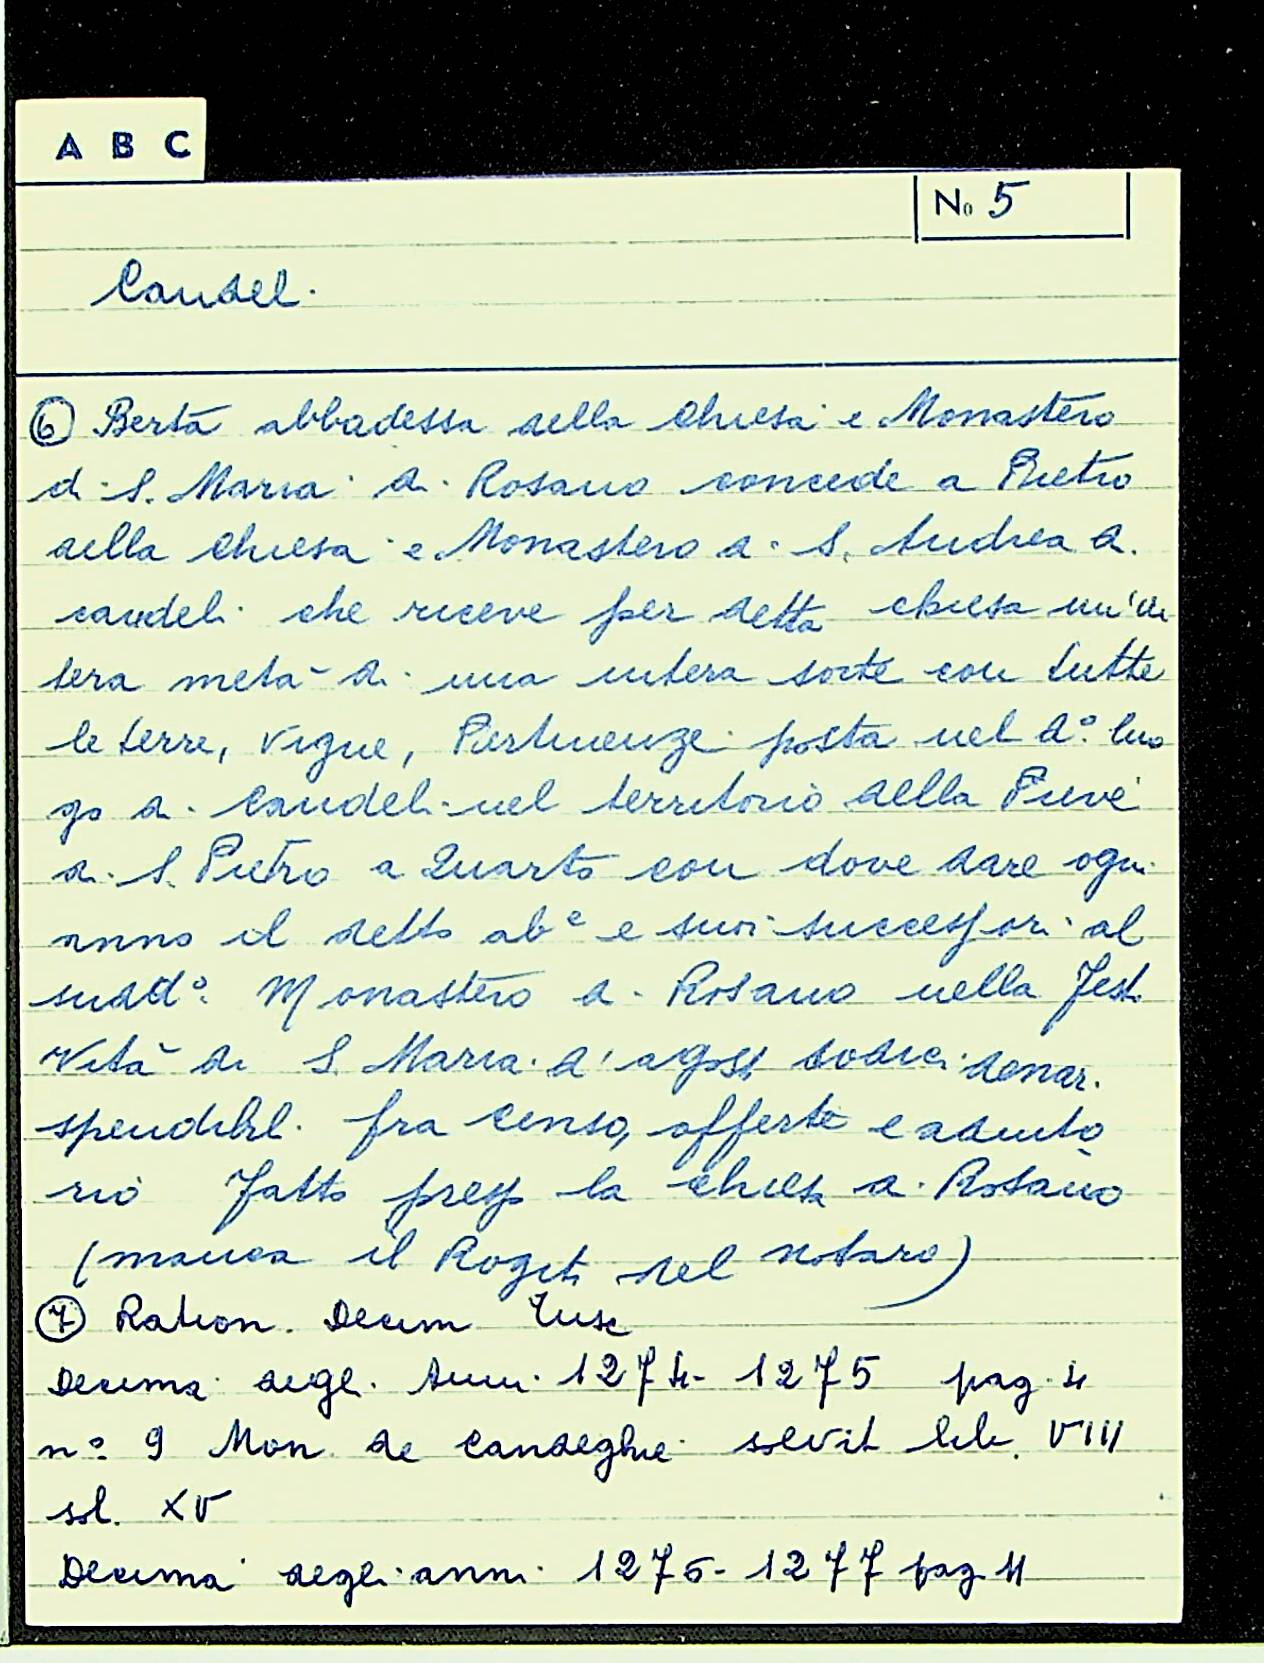 A B C
No 5
Candel.
⑥ Berta abbadessa della Chiesa e Monastero
di S. Maria di Rosano concede a Pietro
della Chiesa e Monastero di S. Andrea di
candeli che riceve per detta chiesa un'in
tera metà di una intera sorte con tutte
le terre, vigne, Pertinenze posta nel do. luo
go di Candeli nel territorio della Pieve
di S. Pietro a Quarto con dove dare ogni
anno il detto abe e suoi successori al
suddo. Monastero di Rosano nella Festi
vità di S. Maria d'agost dodici denar.
spendibil. fra censo, offerte e adiuto
rio Fatto presso la chiesa di Rosano
(manca il Rogito del notaro)
⑦ Ration. Decim Tusc
Decima degli Anni 1274-1275 pag. 4
no. 9 Mon. de Candeghie solvit lib. VIII
sol. XV
Decima degli anni 1276-1277 pag